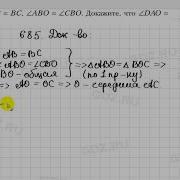 = BC, ∠ABO = ∠CBO. Докажите, что ∠DAO =
685. Док-во:
AB = BC
∠ABO = ∠CBO
BO – общая
=> △ABO = △BOC =>
(по 1 пр-ку)
=> AO = OC => O – середина AC